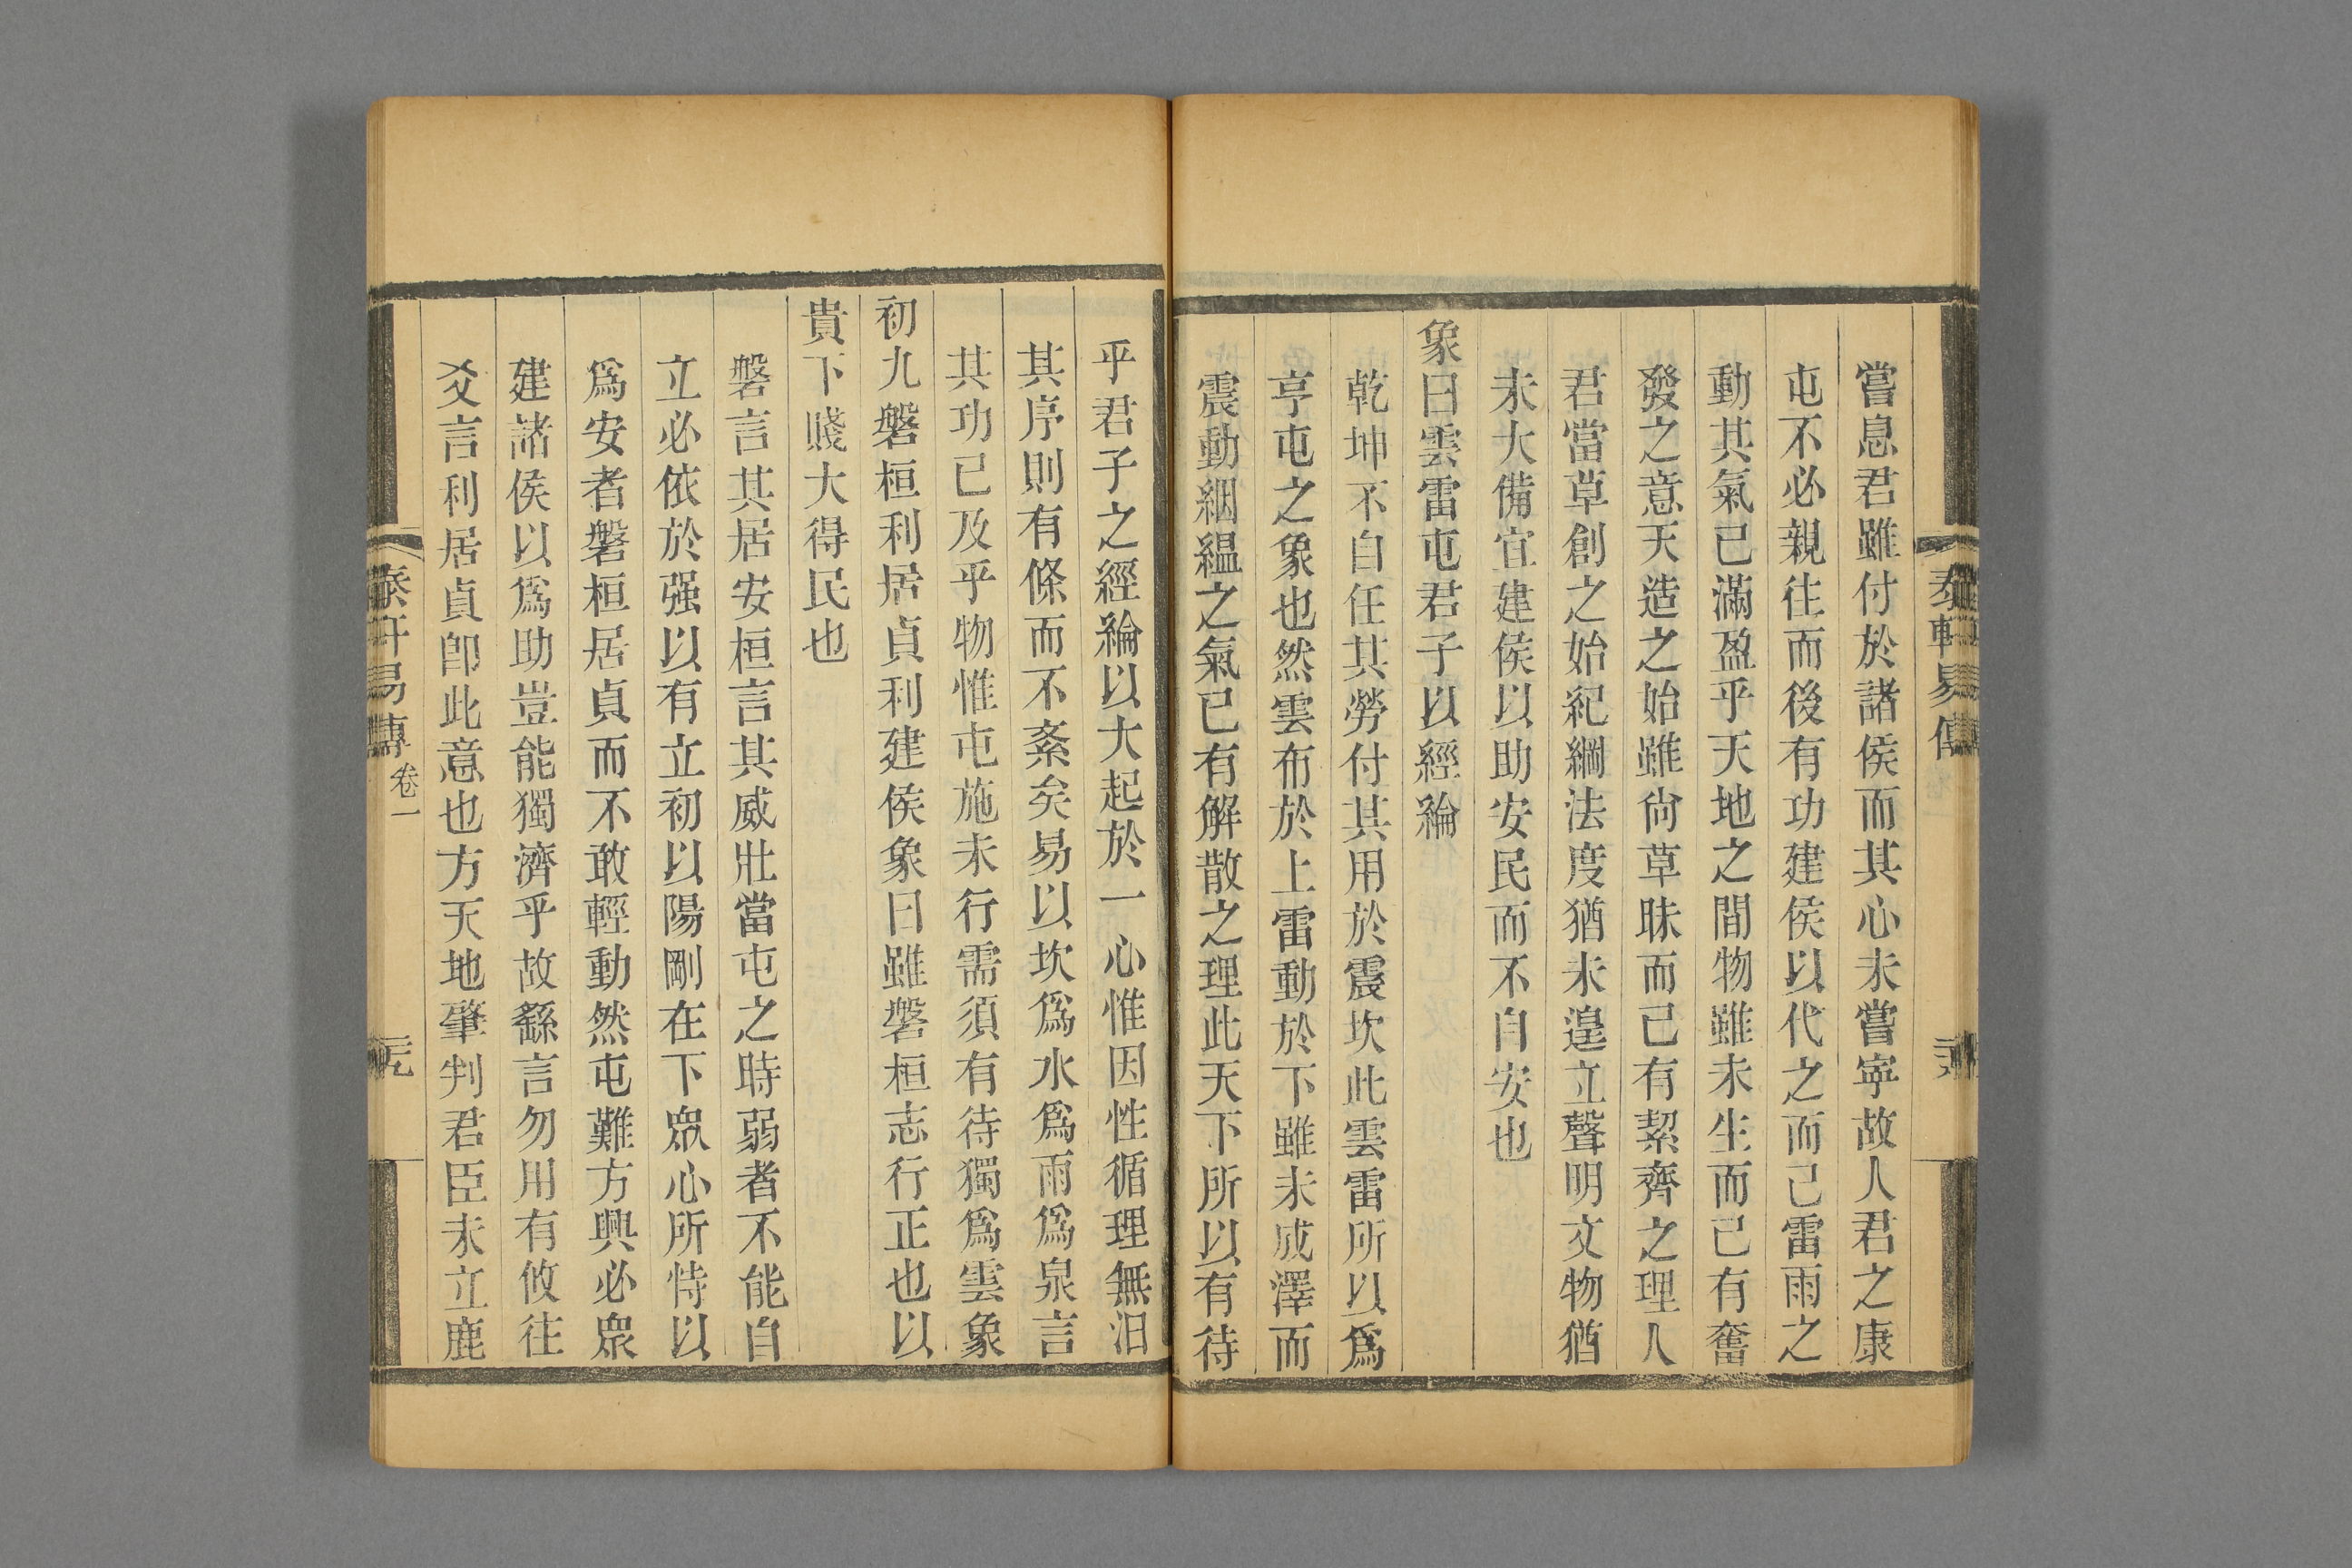 嘗息君雖付於諸侯而其心未嘗寧故人君之康
屯不必親往而後有功建侯以代之而已雷雨之
動其氣已滿盈乎天地之間物雖未生而已有奮
發之意天造之始雖尙草昧而已有絜齊之理人
君當草創之始紀綱法度猶未遑立聲明文物猶
未大備宜建侯以助安民而不自安也
象曰雲雷屯君子以經綸
乾坤不自任其勞付其用於震坎此雲雷所以爲
亨屯之象也然雲布於上雷動於下雖未成澤而
震動絪縕之氣已有解散之理此天下所以有待
乎君子之經綸以大起於一心惟因性循理無汩
其序則有條而不紊矣易以坎爲水爲雨爲泉言
其功已及乎物惟屯施未行需須有待獨爲雲象
初九磐桓利居貞利建侯象曰雖磐桓志行正也以
貴下賤大得民也
磐言其居安桓言其威壯當屯之時弱者不能自
立必依於强以有立初以陽剛在下眾心所恃以
爲安者磐桓居貞而不敢輕動然屯難方興必眾
建諸侯以爲助豈能獨濟乎故繇言勿用有攸往
爻言利居貞卽此意也方天地肇判君臣未立鹿
易傳 卷一 元